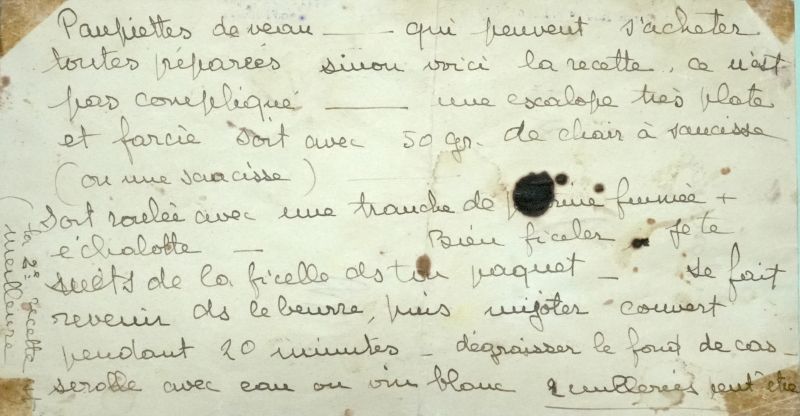 Paupiettes de veau — qui peuvent s'acheter
toutes préparées sinon voici la recette, ce n'est
pas compliqué — une escalope très plate
et farcie soit avec 50 gr. de chair à saucisse
(ou une saucisse)
Soit roulée avec une tranche de poitrine fumée +
échalotte — Bien ficeler je te
mets de la ficelle ds ton paquet — se fait
revenir ds le beurre, puis mijoter couvert
pendant 20 minutes — dégraisser le fond de cas-
serolle avec eau ou vin blanc 2 cuillerées peut être
(la 2e recette est
meilleure